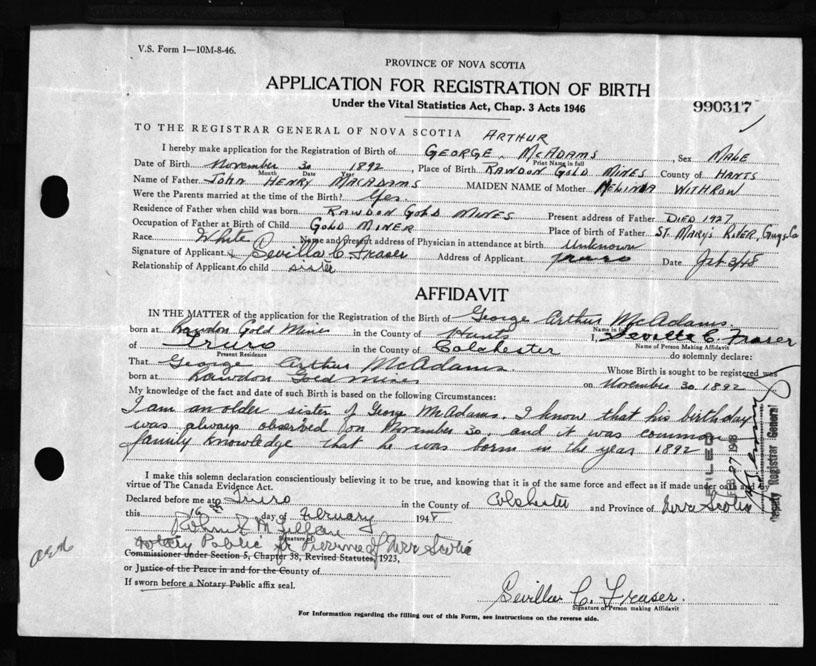 V.S. Form 1—10M-8-46.
PROVINCE OF NOVA SCOTIA
APPLICATION FOR REGISTRATION OF BIRTH
Under the Vital Statistics Act, Chap. 3 Acts 1946
990317
TO THE REGISTRAR GENERAL OF NOVA SCOTIA
ARTHUR
I hereby make application for the Registration of Birth of GEORGE McADAMS Sex MALE
Print Name in full
Date of Birth November 30 1892 Place of Birth RAWDON GOLD MINES County of HANTS
Month Date Year
Name of Father JOHN HENRY MACADAMS MAIDEN NAME of Mother MELINDA WITHROW
Were the Parents married at the time of the Birth? Yes
Residence of Father when child was born RAWDON GOLD MINES Present address of Father DIED 1927
Occupation of Father at Birth of Child GOLD MINER Place of birth of Father ST. MARY'S RIVER, Guys Co
Race White Name and present address of Physician in attendance at birth Unknown
Signature of Applicant Sevilla C. Fraser Address of Applicant Truro Date Feb 3/48
Relationship of Applicant to child sister
AFFIDAVIT
IN THE MATTER of the application for the Registration of the Birth of George Arthur McAdams
Name in full
born at Rawdon Gold Mines in the County of Hants I, Sevilla C. Fraser
Name of Person Making Affidavit
of Truro in the County of Colchester do solemnly declare:
Present Residence
That George Arthur McAdams Whose Birth is sought to be registered was
born at Rawdon Gold Mines on November 30, 1892
My knowledge of the fact and date of such Birth is based on the following Circumstances:
I am an older sister of George McAdams. I know that his birthday
was always observed on November 30 and it was common
family knowledge that he was born in the year 1892
FILED
FEB 27 1948
Deputy Registrar General
I make this solemn declaration conscientiously believing it to be true, and knowing that it is of the same force and effect as if made under oath and by
virtue of The Canada Evidence Act.
Declared before me at Truro in the County of Colchester and Province of Nova Scotia
this 16 day of February 1948
Signature of
Notary Public for Province of Nova Scotia
Commissioner under Section 5, Chapter 38, Revised Statutes, 1923,
or Justice of the Peace in and for the County of
If sworn before a Notary Public affix seal.
Sevilla C. Fraser.
Signature of Person making Affidavit
For Information regarding the filling out of this Form, see instructions on the reverse side.